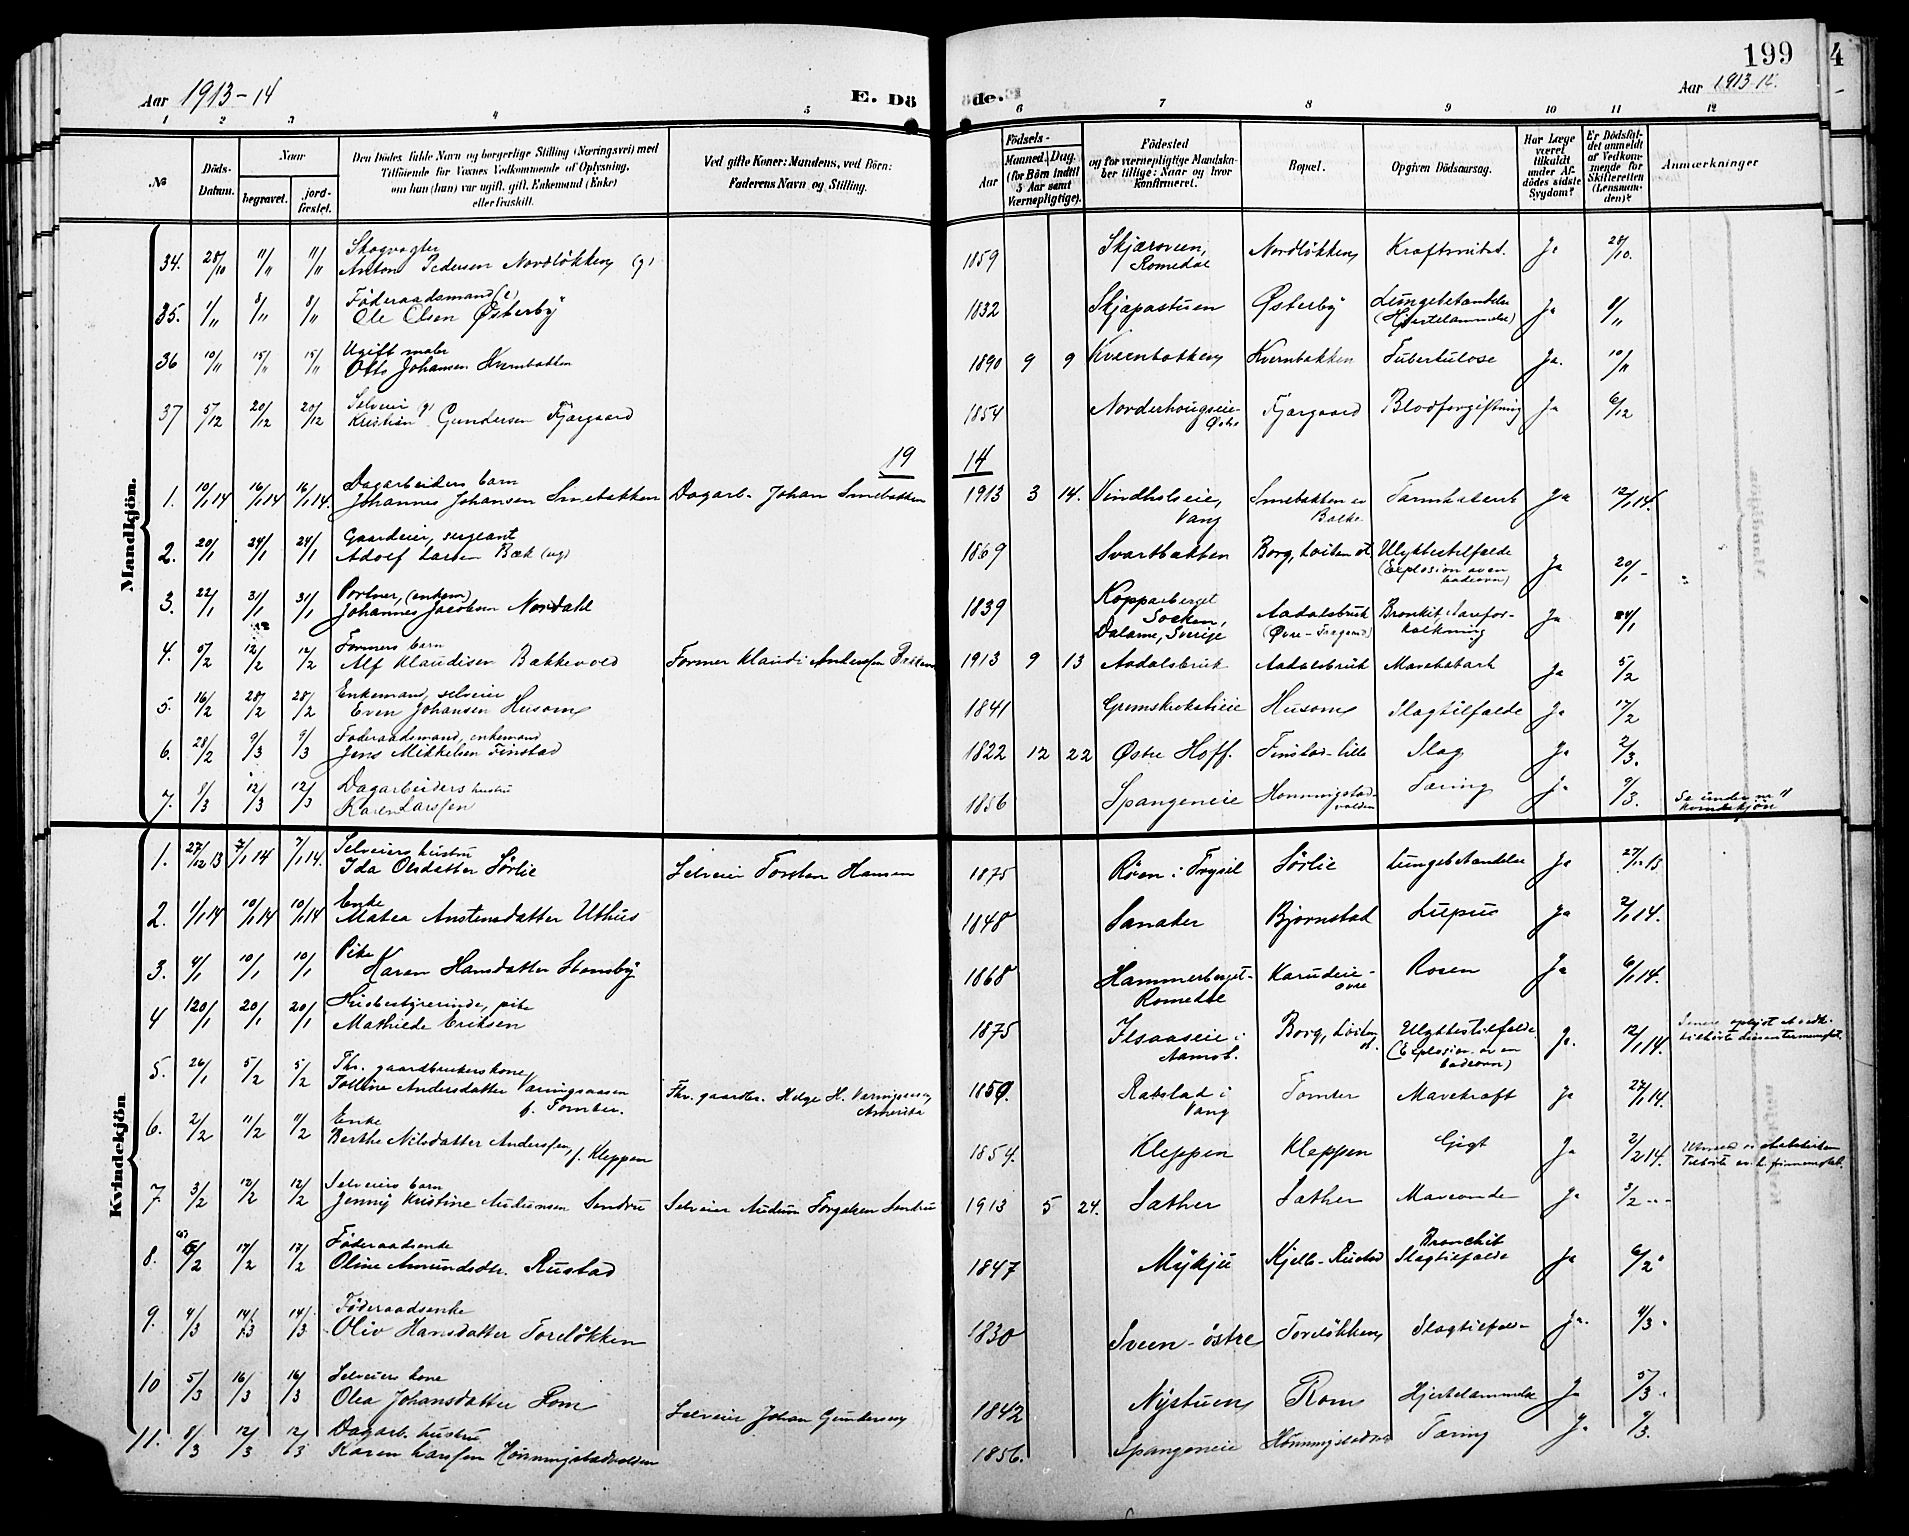 199
4
Aar 1913-14
E. Dö
de.
Aar 1913-14.
1 2 3 4 5 6 7 8 9 10 11 12
No
Döds-Datum.
Naar
begravet.
jord-fæstet.
Den Dödes fulde Navn og borgerlige Stilling (Næringsvei) med
Tilföiende for Voxnes Vedkommende af Oplysning,
om han (hun) var ugift, gift, Enkemand (Enke)
eller fraskilt.
Ved gifte Koner: Mandens, ved Börn:
Faderens Navn og Stilling.
Födsels-
Aar
Maaned. Dag.
(for Börn indtil
5 Aar samt
Værnepligtige).
Födested
og for værnepligtige Mandskaber tillige: Naar og hvor
konfirmeret.
Bopæl.
Opgiven Dödsaarsag.
Har Læge
været
tilkaldt
under Afdödes sidste
Sygdom?
Er Dödsfaldet anmeldt
af Vedkommende for
Skifteretten
(Lensmanden)?
Anmærkninger
Mandkjön.
34. 28/10 11/11 11/11 Skogvogter
Anton Pedersen Nordløkken (g) 1859 Skjærsveen, Romedal Nordløkken Kraftnedsat. Ja 28/10.
35. 1/11 8/11 8/11 Føderaadsmand (e)
Ole Olsen Østerby 1832 Skjæpastuen Østerby Lungebetændelse (Hjertelammelse) Ja 8/11
36 10/11 15/11 15/11 Ugift maler
Otto Johansen Kvernbakken 1890 9 9 Kvernbakken Kvernbakken Tuberkulose Ja. 10/11
37 5/12 20/12 20/12 Selveier g)
Kristian Gundersen Fjærgaard 1854 Norderhougseie Østre Fjærgaard Blodforgiftning Ja 6/12
19 14
1. 10/1 14 16/1 14 16/1 14. Dagarbeiders barn
Johannes Johansen Smebakken Dagarb. Johan Smebakken 1913 3 14. Vindholseie, Vang Smebakken Balke Tarmkatarrh Ja 12/1 14.
2. 20/1 24/1 24/1 Gaardeier, sergeant
Adolf Larsen Bæk (ug) 1869 Svartbakken Borg, Løiten Ulykkestilfælde (Explosion av en badeovn) Ja 20/1 -
3. 22/1 31/1 31/1 Portner, (enkem)
Johannes Jacobsen Nordahl 1839 Kopparberget Socken, Dalarne, Sverige Aadalsbruk Bronkit, Aareforkalkning Ja 24/1
4. 5/2 12/2 12/2 Formers barn
Alf Klaudisen Bækkevold Former Klaudi Anderssen 1913 9 13 Aadalsbruk Aadalsbruk Mavekatarh Ja 5/2
5. 16/2 28/2 28/2 Enkemand, selveier
Even Johansen Husom 1841 Grømskrokshieie Husom Slagtilfælde Ja 17/2
6. 28/2 9/3 9/3 Føderaadsmand, enkemand
Jens Mikkelsen Finstad 1822 12 22 Østre Hoff. Finstad-lille Slag Ja 2/3.
7. 8/3 12/3 12/3 Dagarbeiders hustru
Karen Larssen 1856 Spangeneie Honningstadvolden Tæring Ja 9/3. Se under nr 11 kvindekjøn
Kvindekjön
1. 27/12 13 7/1 14 7/1 14. Selveiers hustru
Ida Olsdatter Sørlie Selveier Torsten Hansen 1875 Røen i Trysil Sørlie Lungebetændelse Ja 27/12 13
2. 1/1 14 10/1 14 10/1 14 Enke
Matea Anstensdatter Uthus 1848 Sanaker Bjørnstad Lupus Ja 2/1 14.
3. 4/1 10/1 10/1 Pike
Karen Hansdatter Stensby 1868 Hammerberget-Romedal Karudeie øvre Rosen Ja 6/1 14.
4 20/1 20/1 20/1 Husbestyrerinde, pike
Mathilde Eriksen 1875 Ilsaaseie i Aamot. Borg, Løiten Ulykkestilfælde (Explosion av en badeovn) Ja. 12/1 14.
5. 26/1 5/2 5/2 Fhv. gaardbrukers kone
Tolline Andersdatter Væringsaasen f. Tomter. Fhv. gaardbr. Helge H. Væringsaasen Amerika 1859. Rabstad i Vang Tomter Mavekræft Ja 27/1 14.
6. 2/2 11/2 11/2 Enke
Berthe Nilsdatter Anderssen, f. Kleppen 1854. Kleppen Kleppen Gigt Ja 2/2 14.
7. 3/2 12/2 12/2 Selveiers barn
Jenny Kristine Audunsen Sendru Selveier Audun Torgalsen Sendru 1913 5 24. Sæther Sæther Maveonde Ja 3/2
8. 5/2 17/2 17/2 Føderaadsenke
Oline Amundsdtr. Rustad 1847 Mykju Kjelle-Rustad Bronchit Slagtilfælde Ja 6/2
9. 4/3 14/3 14/3 Føderaadsenke
Oliv Hansdatter Torsløkken 1830 Sveen-østre Torsløkken Slagtilfælde Ja. 4/3.
10 5/3 16/3 16/3 Selveiers kone
Olea Johansdatter Rom Selveier Johan Gundersen 1842 Nystuen Rom Hjertelammelse Ja 5/3.
11. 8/3 12/3 12/3 Dagarb. hustru
Karen Larssen Honningstadvolden 1856. Spangeneie Honningstadvolden Tæring Ja 9/3.